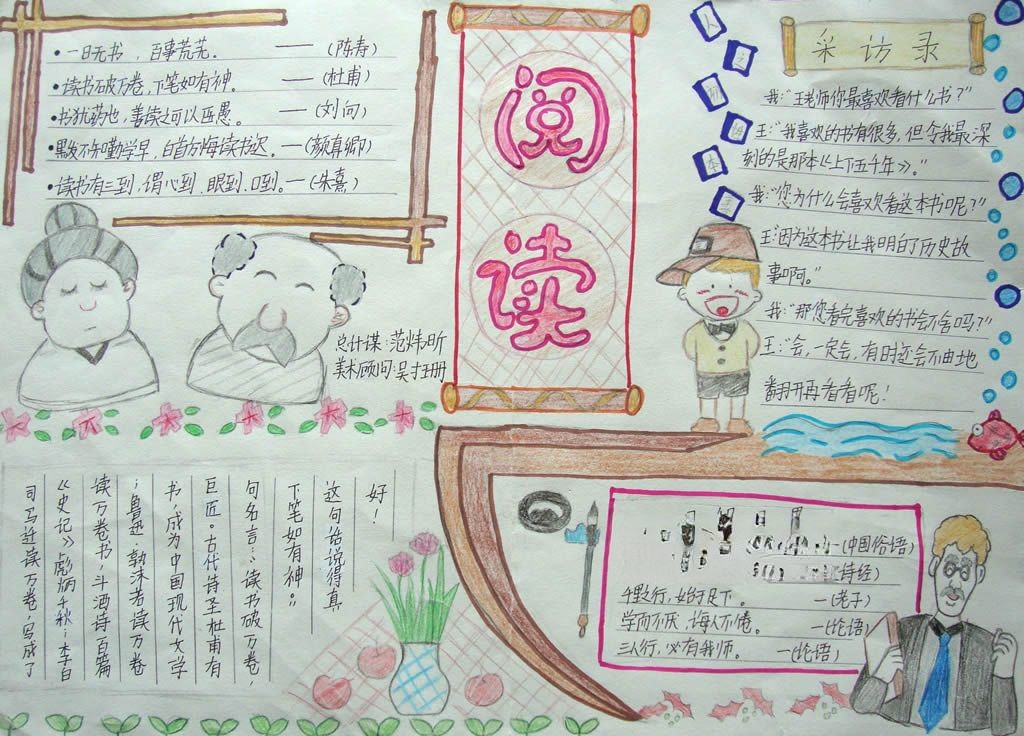 • 一日无书，百事荒芜。 ——（陈寿）
• 读书破万卷，下笔如有神。 ——（杜甫）
• 书犹药也，善读之可以医愚。 ——（刘向）
• 黑发不知勤学早，白首方悔读书迟。——（颜真卿）
• 读书有三到，谓心到、眼到、口到。——（朱熹）
总计谋：范炜昕
美术顾问：吴
阅
读
人之初性本善
采访录
我："王老师你最喜欢看什么书？"
王："我喜欢的书有很多，但令我最深
刻的是那本《上下五千年》。"
我："您为什么会喜欢看这本书呢？"
王："因为这本书让我明白了历史故
事啊。"
我："那您看完喜欢的书会不舍吗？"
王："会，一定会，有时还会不由地
翻开再看看呢！
司马迁读万卷，写成了
《史记》，彪炳千秋；李白
读万卷书，斗酒诗百篇
；鲁迅、郭沫若读万卷
书，成为中国现代文学
巨匠。古代诗圣杜甫有
句名言："读书破万卷，
下笔如有神。"
这句话说得真
好！
—（中国俗语）
（诗经）
千里之行，始于足下。 —（老子）
学而不厌，诲人不倦。 —（论语）
三人行，必有我师。 —（论语）